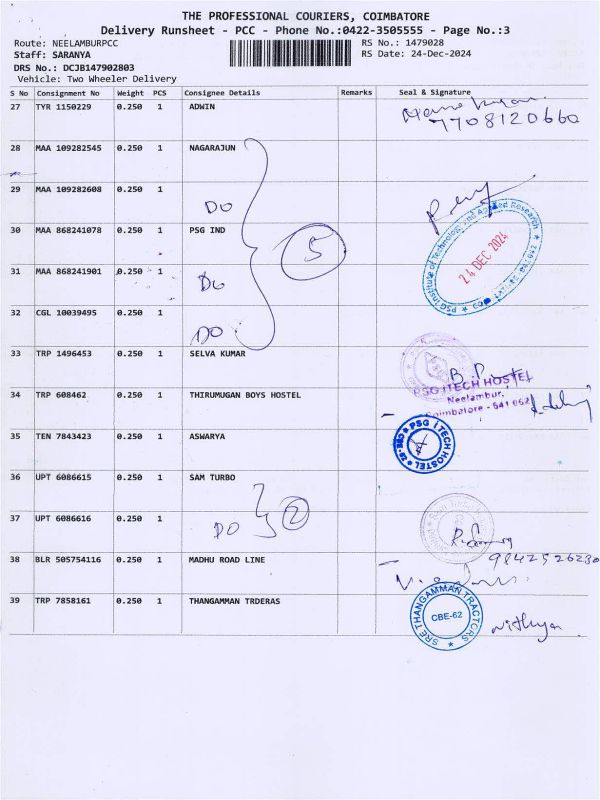 THE PROFESSIONAL COURIERS, COIMBATORE
Delivery Runsheet - PCC - Phone No.:0422-3505555 - Page No.:3
Route: NEELAMBURPCC RS No.: 1479028
Staff: SARANYA RS Date: 24-Dec-2024
DRS No.: DCJB147902803
Vehicle: Two Wheeler Delivery
S No Consignment No Weight PCS Consignee Details Remarks Seal & Signature
27 TYR 1150229 0.250 1 ADWIN
7708120660
28 MAA 109282545 0.250 1 NAGARAJUN
29 MAA 109282608 0.250 1
DO
30 MAA 868241078 0.250 1 PSG IND
5
PSG Institute of Technology and Applied Research
24 DEC 2024
31 MAA 868241901 0.250 1
Do
32 CGL 10039495 0.250 1
DO
33 TRP 1496453 0.250 1 SELVA KUMAR
PSG ITECH HOSTEL
Neelambur,
Coimbatore - 641 062
34 TRP 608462 0.250 1 THIRUMUGAN BOYS HOSTEL
35 TEN 7843423 0.250 1 ASWARYA
PSG ITECH HOSTEL
36 UPT 6086615 0.250 1 SAM TURBO
2
37 UPT 6086616 0.250 1
DO
38 BLR 505754116 0.250 1 MADHU ROAD LINE
9842526230
39 TRP 7858161 0.250 1 THANGAMMAN TRDERAS
SRE THANGAMMAN TRACTORS
CBE-62
Nithya